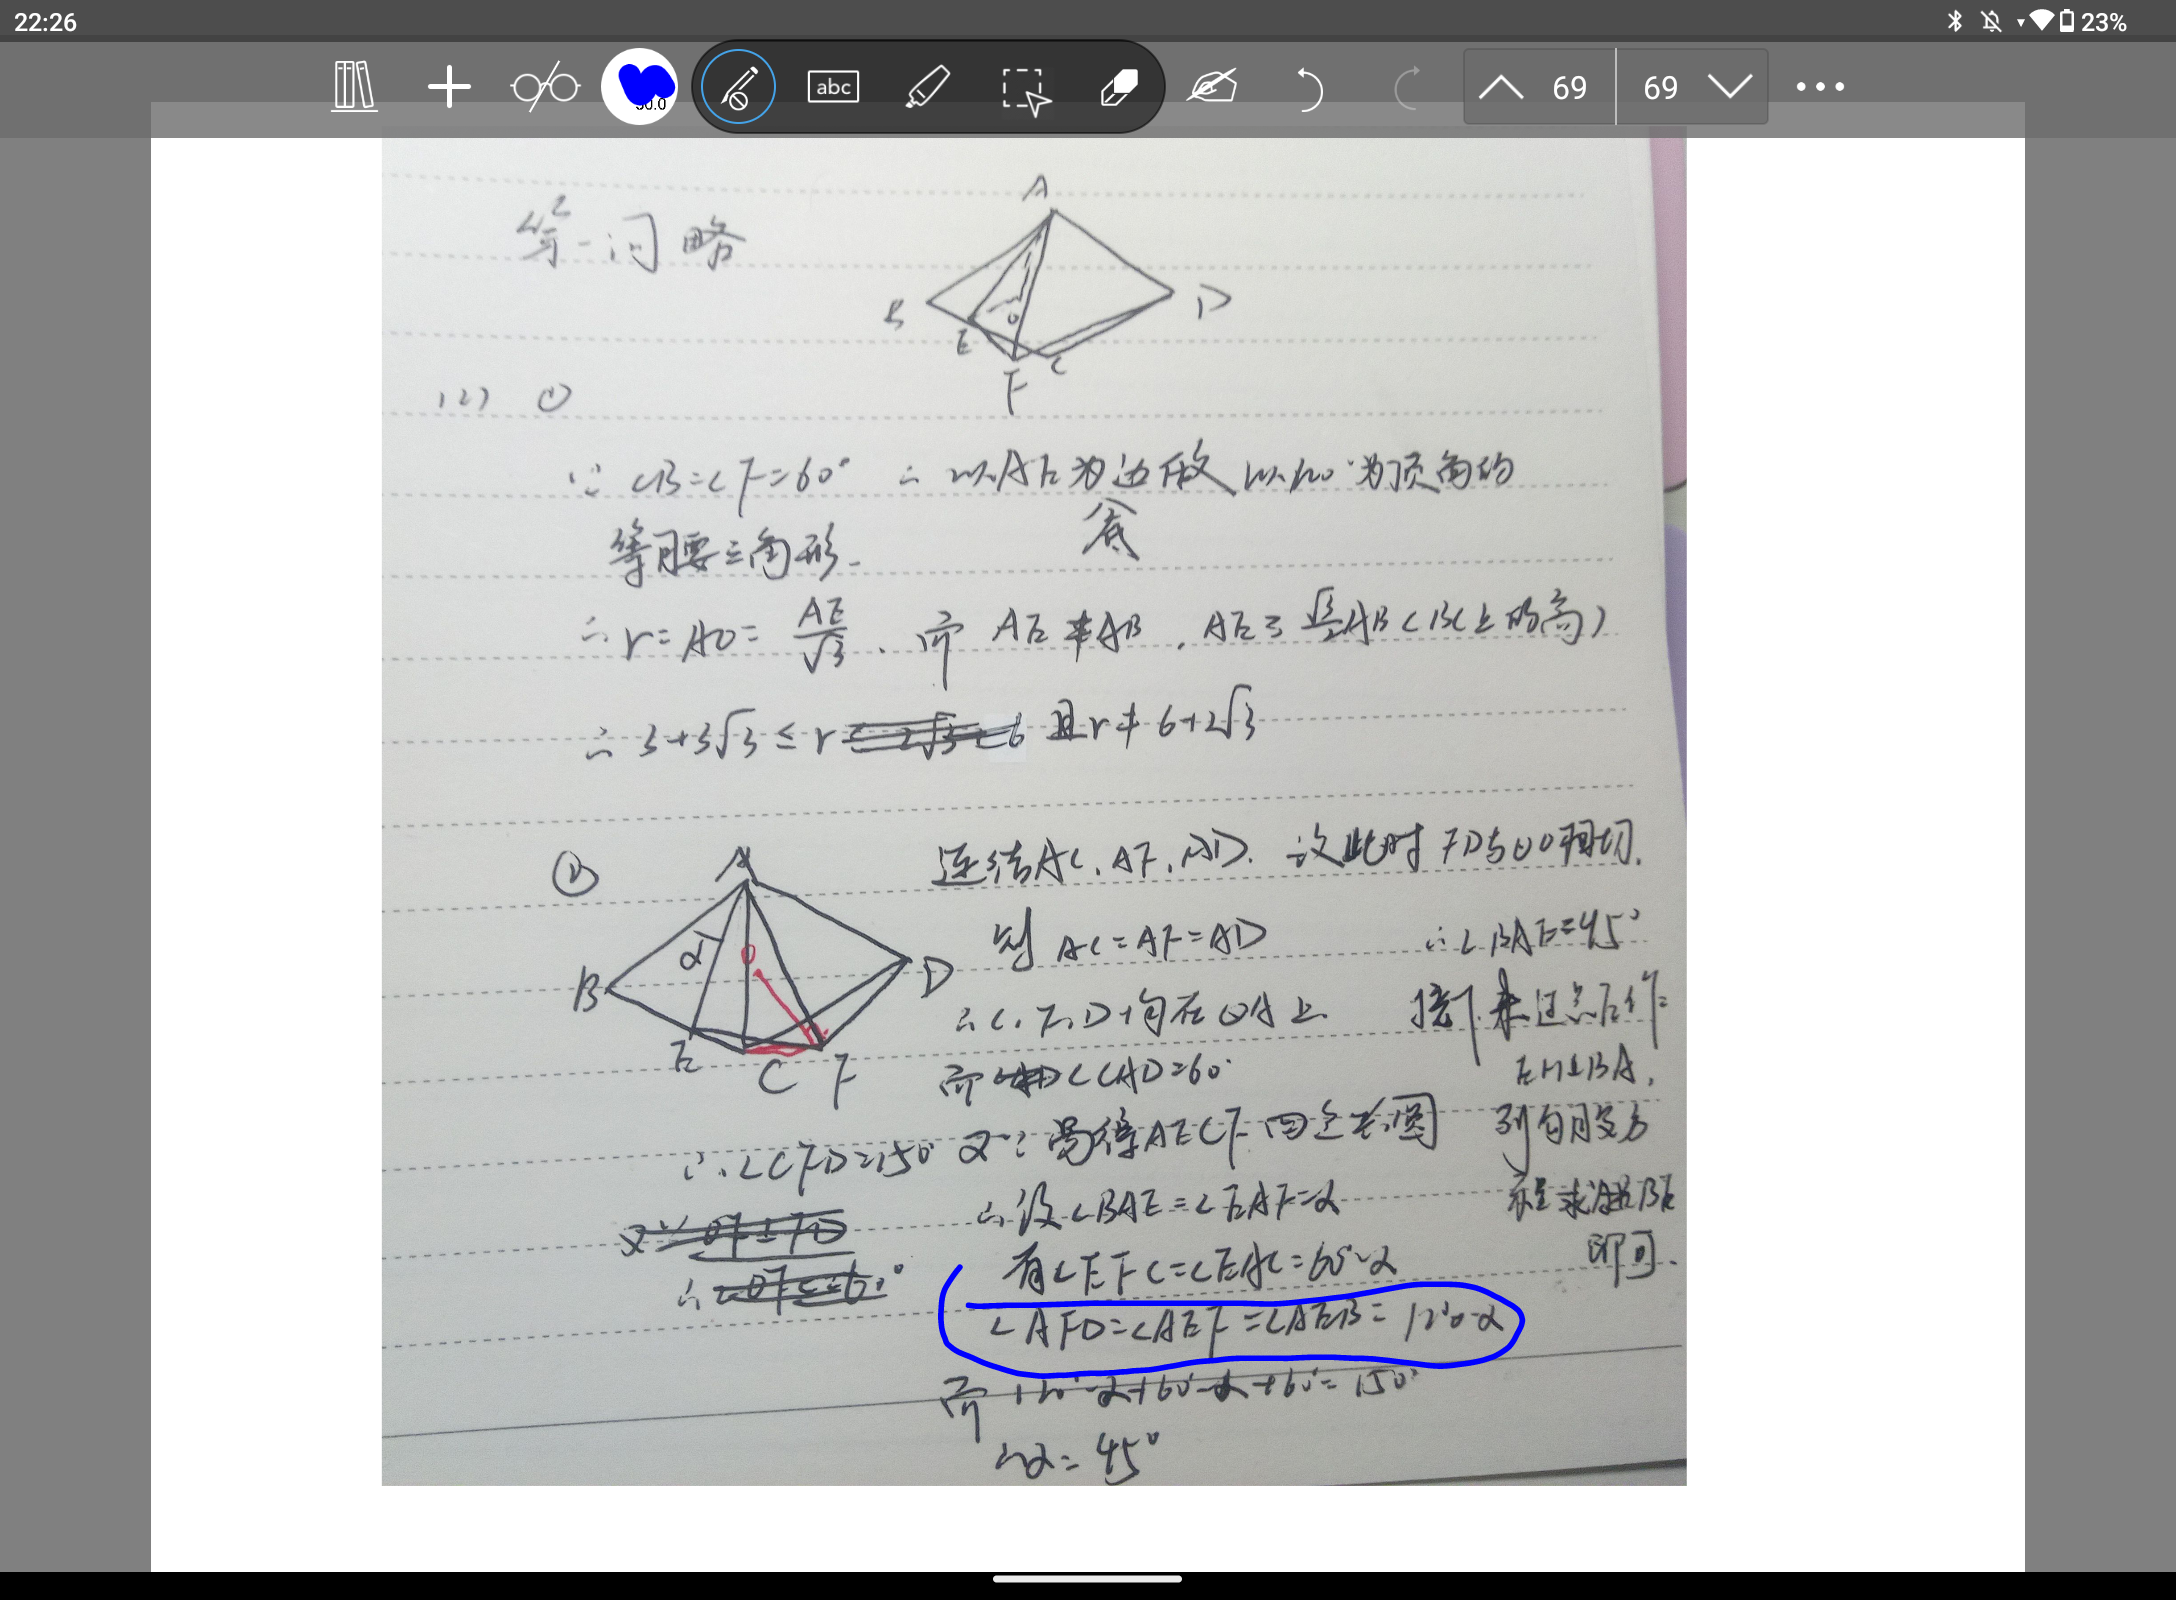 22:26
23%
50.0
abc
69
69
第一问略
A
B
D
E
F
C
(2) ①
∵ ∠B=∠F=60° ∴ 以AE为边做以120°为顶角的
等腰三角形.
∴ r=AO= AE/√3 . 而 AE≠AB , AE≥ √3/2 AB (BC上的高)
∴ 3+3√3 ≤ r 且r≠6+2√3
②
A
α
O
B
D
E
C
F
连结AC、AF、AD. 设此时FD与⊙O相切.
则 AC=AF=AD
∴C、F、D均在⊙A上
而 ∠CAD=60°
∴∠CFD=150° 又∵易得AECF四点共圆
∴设∠BAE=∠EAF=α
有∠EFC=∠EAC=60°-α
∠AFD=∠AEF=∠AEB=120°-α
而 120°-α+60°-α+60°=150°
∴α=45°
∴∠BAE=45°
接下来过点E作
EH⊥BA,
列勾股方
程求出BE
即可.